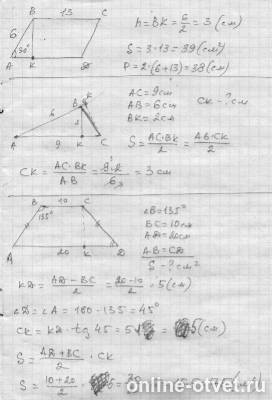 B 13 C
6
30°
A K D
h = BK = 6/2 = 3 (см)
S = 3·13 = 39 (см²)
P = 2·(6+13) = 38 (см)
B K
6 2
A 9 K C
AC = 9см
AB = 6см
BK = 2см
CK - ? см
S = AC·BK/2 = AB·CK/2
CK = AC·BK/AB = 9·2/6 = 3 см
B 10 C
135°
A 20 K D
∠B = 135°
BC = 10см
AD = 20см
AB = CD
S - ? см²
KD = AD - BC/2 = 20-10/2 = 5 (см)
∠D = ∠A = 180 - 135 = 45°
CK = KD · tg 45 = 5 (см)
S = AD + BC/2 · CK
S = 10+20/2
online-otvet.ru